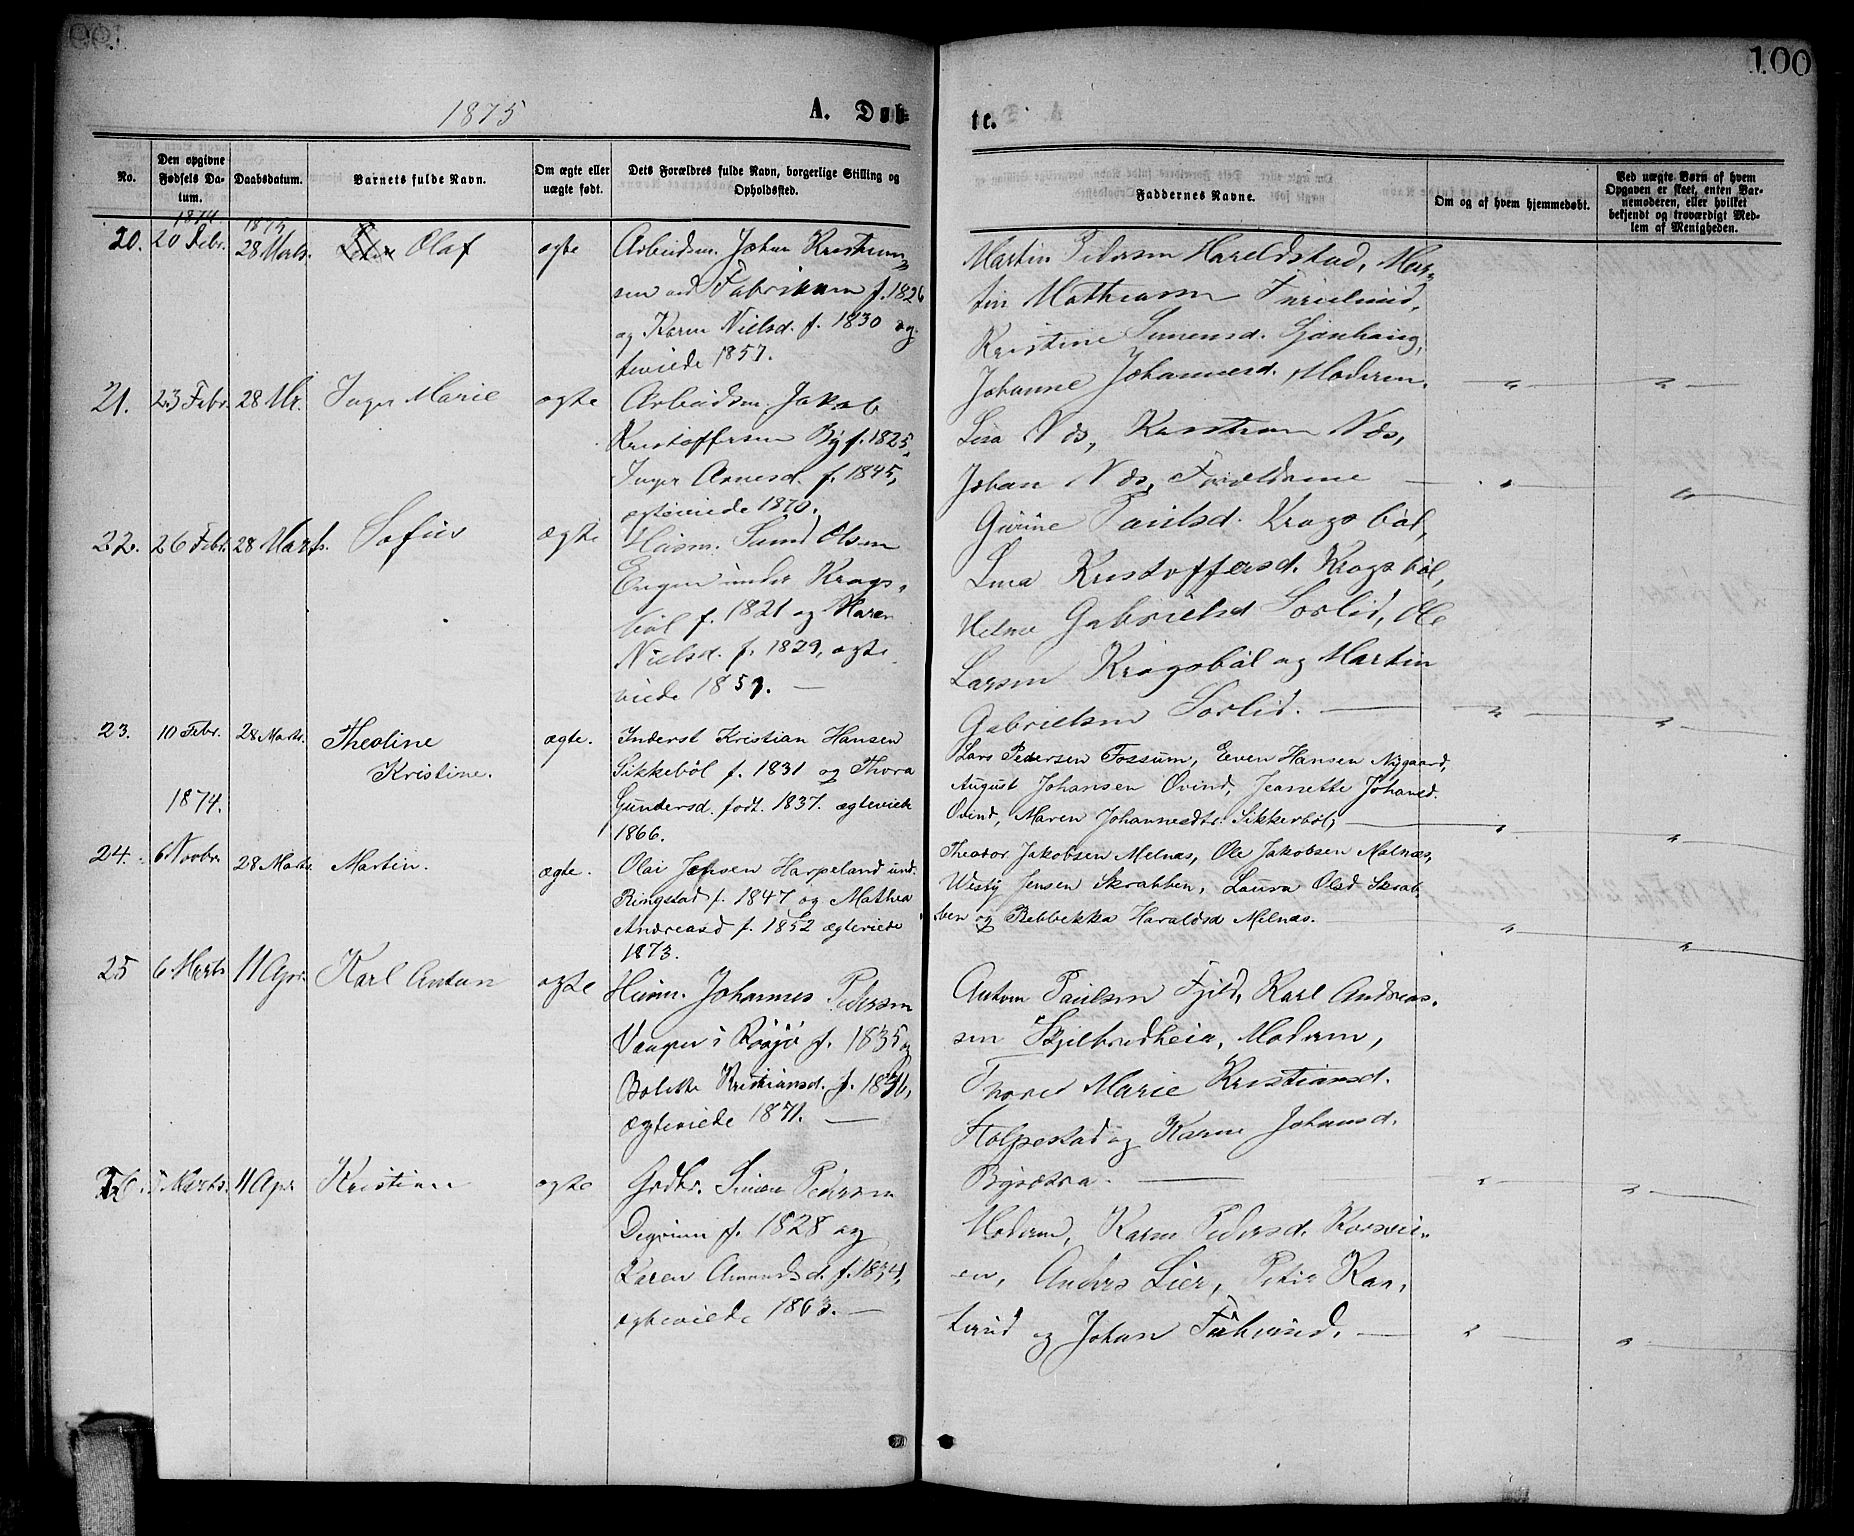 100
1875
A. Døb-
te.
No.
Den opgivne Fødsels Datum.
Daabsdatum.
Barnets fulde Navn.
Om ægte eller uægte født.
Dets Forældres fulde Navn, borgerlige Stilling og Opholdssted.
Faddernes Navne.
Om og af hvem hjemmedøbt.
Ved uægte Børn af hvem Opgaven er skeet, enten Barnemoderen, eller hvilket bekjendt og troværdigt Medlem af Menigheden.
1874 1875
20. 20 Febr. 28 Marts. Olaf ægte
Arbeidsm. Johan Kristian-
sen ved Fabrikken f. 1826
og Karen Nielsd. f. 1830 æg-
teviede 1857.
Martin Pedersen Haraldstad, Mar-
tin Mathiassen
Kristine Simensd.
Johanne Johannesd. Moderen.
21. 23 Febr. 28 M. Inger Marie ægte
Arbeidsm. Jakob
Kristoffersen By f. 1825,
Inger Arnesd. f. 1845,
ægteviede 1870.
Lisa Næs, Kristian Næs,
Johan Næs, Forældrene
22. 26 Febr. 28 Marts. Sofus ægte
Husm. Olsen
Engen under Krogs-
bøl f. 1821 og Karen
Nielsd. f. 1829, ægte
viede 1857.
Gurine Paulsd. Krogsbøl,
Lina Kristoffersd. Krogsbøl,
Helene Gabrielsd Sorlid, Ole
Larsen Krogsbøl og Martin
Gabrielsen Sorlid.
23. 10 Febr. 28 Marts. Theoline ægte.
Kristine.
Inderst Kristian Hansen
Sikkebøl f. 1831 og Thora
Gundersd. født. 1837. ægteviede
1866.
Lars Pedersen Fossum, Even Hansen Nygaard,
August Johansen Øvind, Jeanette Johansd.
Øvind, Maren Johannesdtr. Sikkerbøl,
1874.
24. 6 Novbr. 28 Marts Martin. ægte.
Olai Jensen Harpeland und.
Ringstad f. 1847 og Mathea
Andreasd f. 1852 ægteviede
1873.
Theodor Jakobsen Melnæs, Ole Jakobsen Melnæs,
Westy Jensen Skrabben, Laura Olsd Skrab-
ben og Bebbekka Haraldsd Melnæs.
25 6 Marts 11 Apr. Karl Anton ægte
Husm. Johannes Pedersen
Vangen i Røsjø f. 1835 og
Bolette Kristiansd. f. 1836,
ægteviede 1871.
Anton Paulsen Fjeld, Karl Andreas-
sen Skjelbredheia, Moderen,
Marie Kristiansd.
Holpestad og Karen Johansd.
Bysætra.
26. 7 Marts. 11 Apr Kristian ægte
Grdbr. Simen Pedersen
Digerud f. 1828 og
Karen Amundsd. f. 1834,
ægteviede 1863.
Moderen, Karen Pedersd.
en, Anders Lier, Peter Kan-
terud og Johan